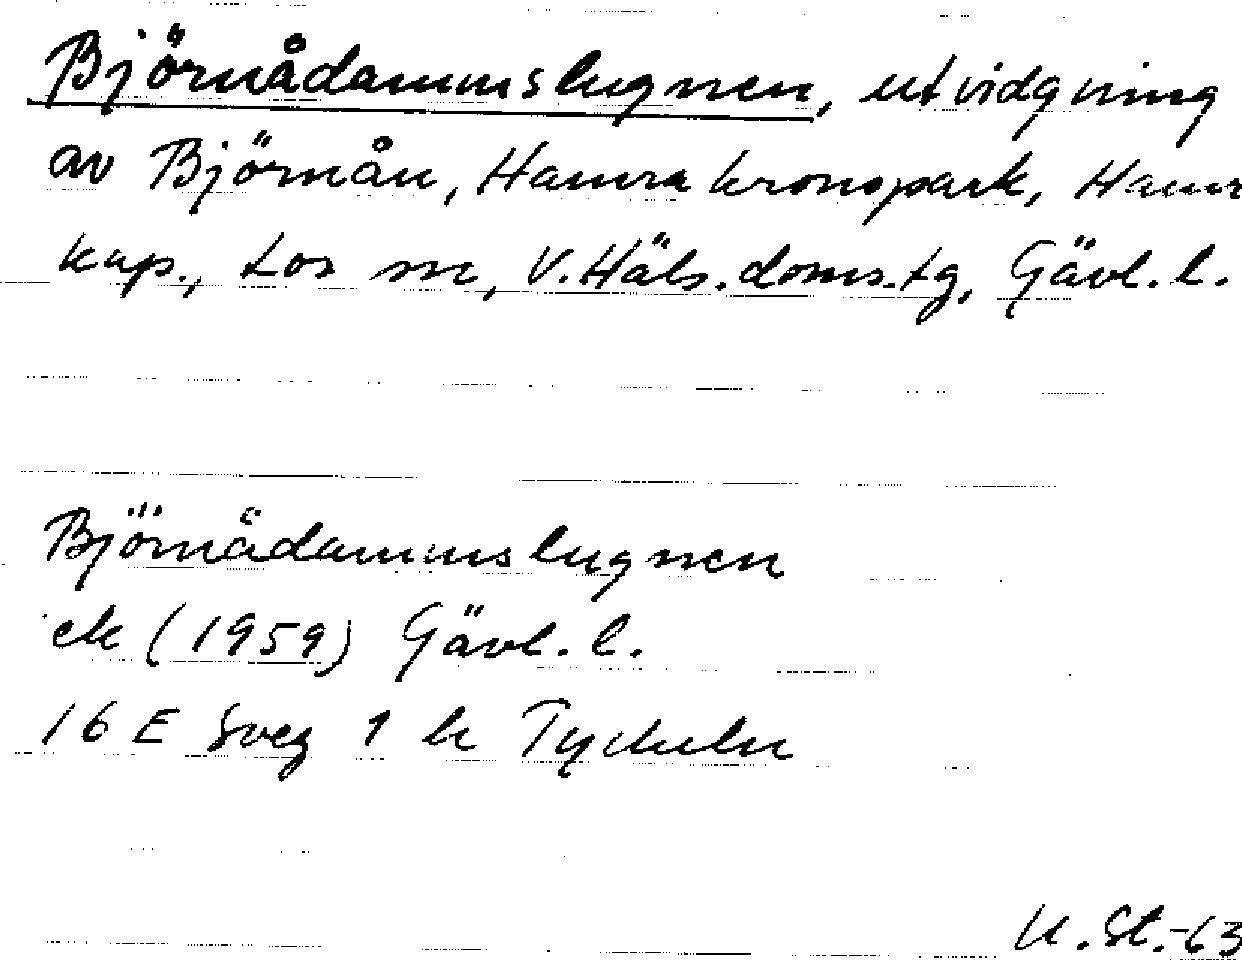 Björnådammslugnen, utvidgning
av Björnån, Hamra kronopark, Hamr
kap., Los sn, V. Häls. doms.tg, Gävl. l.
Björnådammslugnen
ek (1959) Gävl. l.
16 E Sveg 1 h Tyckeln
U. St. -63